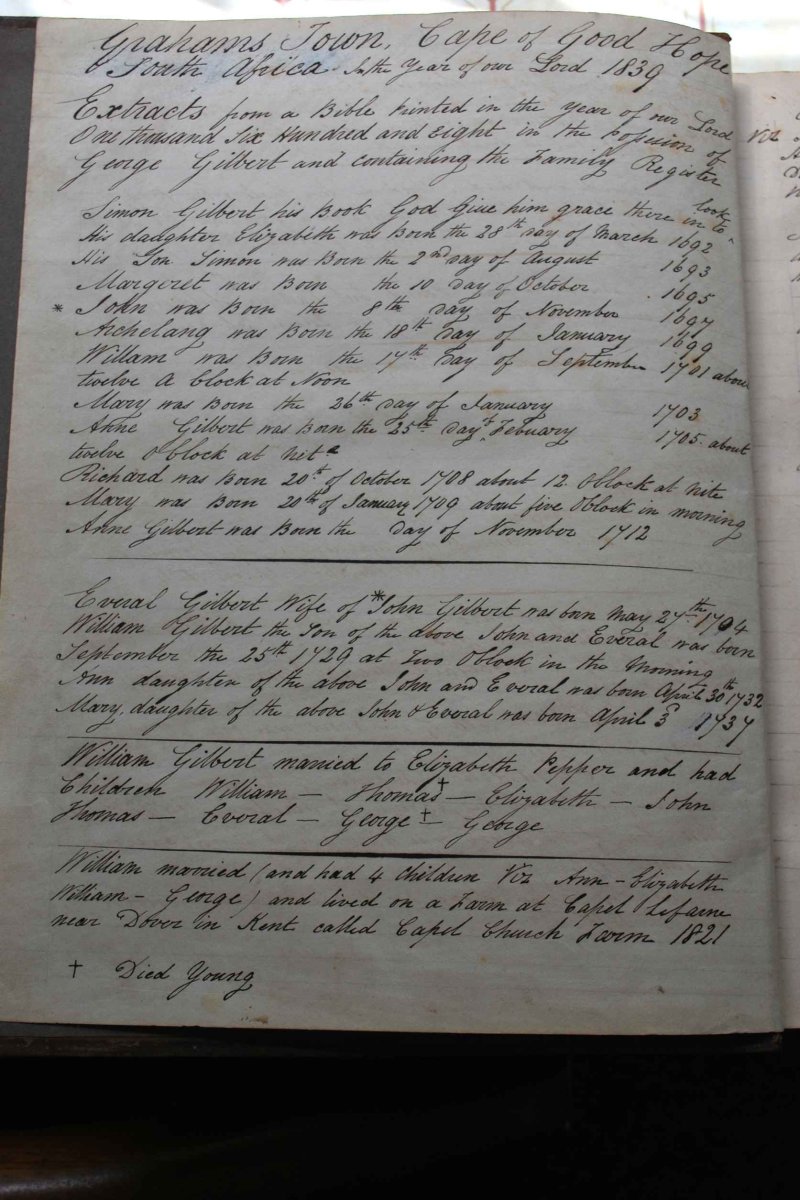 Grahams Town, Cape of Good Hope
South Africa. In the Year of our Lord 1839
Extracts from a Bible Printed in the Year of our Lord
One thousand Six Hundred and Eight in the Possesion of
George Gilbert and containing the Family Register
Simon Gilbert his Book God Give him grace there in to look
His daughter Elizabeth was Born the 28th day of March 1692
His Son Simon was Born the 2nd day of August 1693
Margeret was Born the 10 day of October 1695
* John was Born the 8th day of November 1697
Archelang was Born the 18th day of January 1699
Willam was Born the 17th day of September 1701 about
twelve A Clock at Noon
Mary was Born the 26th day of January 1703
Anne Gilbert was Born the 25th day of Febuary 1705. about
twelve O Clock at Nite
Richard was Born 20th of October 1708 about 12 O Clock at Nite
Mary was Born 20th of January 1709 about five O Clock in morning
Anne Gilbert was Born the day of November 1712
Everal Gilbert Wife of *John Gilbert was born May 27th 1704
William Gilbert the Son of the above John and Everal was born
September the 25th 1729 at two O Clock in the Morning
Ann daughter of the above John and Everal was born April 30th 1732
Mary, daughter of the above John & Everal was born April 3d 1737
William Gilbert married to Elizabeth Pepper and had
Children William — Thomas† — Elizabeth — John
Thomas — Everal — George† — George
William married (and had 4 Children Viz Ann – Elizabeth
William – George) and lived on a Farm at Capel Lefarne
near Dover in Kent called Capel Church Farm 1821
† Died Young
Viz